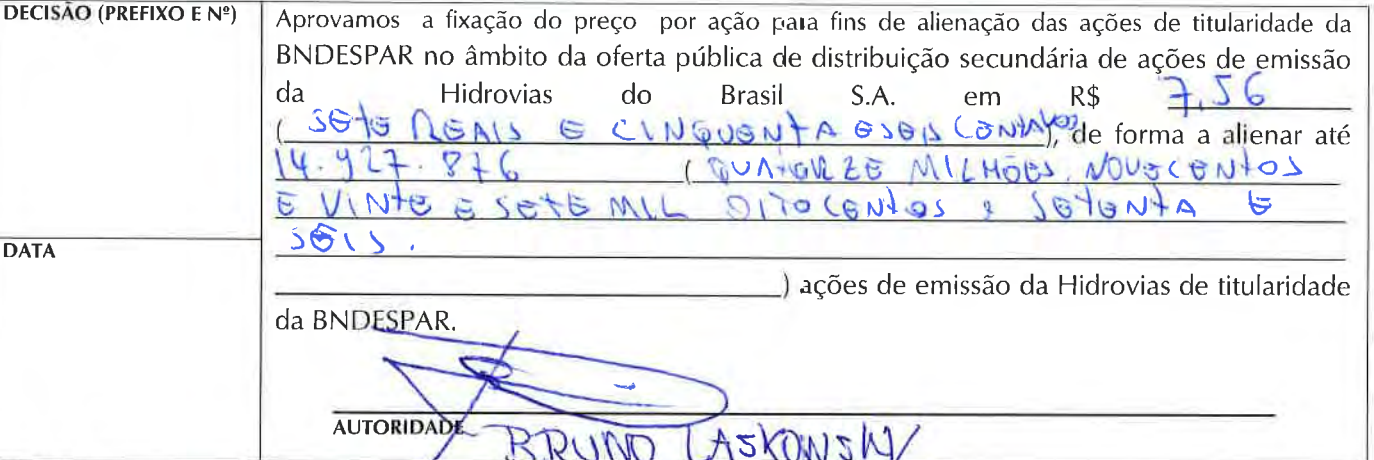 DECISÃO (PREFIXO E Nº)
Aprovamos a fixação do preço por ação para fins de alienação das ações de titularidade da
BNDESPAR no âmbito da oferta pública de distribuição secundária de ações de emissão
da Hidrovias do Brasil S.A. em R$ 7,56
(SETE REAIS E CINQUENTA E SEIS CENTAVOS), de forma a alienar até
14.927.876 (QUATORZE MILHÕES, NOVECENTOS
E VINTE E SETE MIL OITOCENTOS E SETENTA E
SEIS.
DATA
) ações de emissão da Hidrovias de titularidade
da BNDESPAR.
AUTORIDADE
BRUNO LASKOWSKY